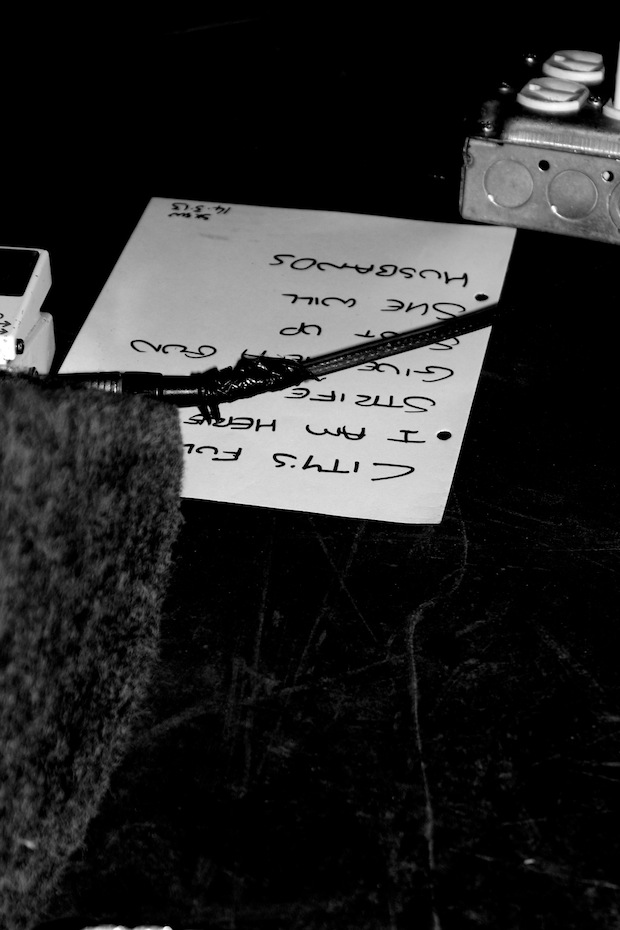 CITY'S FUL
I AM HERE
STRIFE
GIVE A GUN
UP
SHE WILL
HUSBANDS
14.5.13